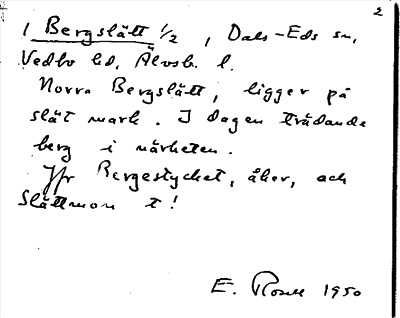 2
1 Bergslätt 1/2, Dals-Eds sn,
Vedbo hd, Älvsb. l.
Norra Bergslätt, ligger på
slät mark. I dagen trädande
berg i närheten.
Jfr Bergestycket, åker, och
Slättmon t!
E. Rosell 1950